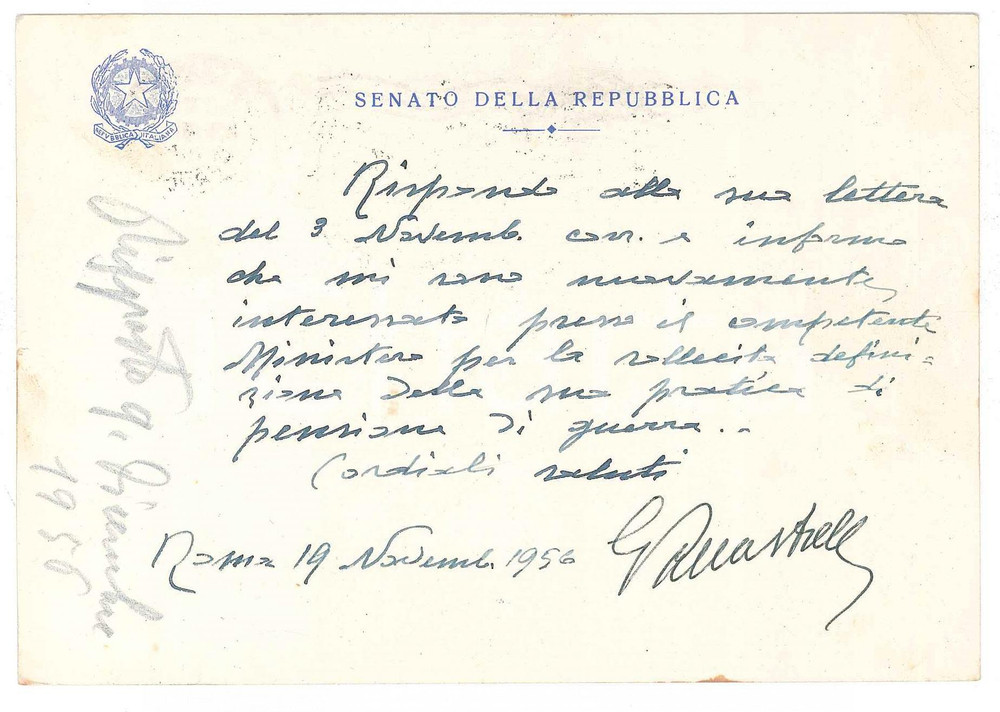 REPVBBLICA ITALIANA
SENATO DELLA REPUBBLICA
Rispondo alla sua lettera
del 3 Novemb. corr. e informo
che mi sono nuovamente
interessato presso il competente
Ministero per la sollecita defini-
zione della sua pratica di
pensione di guerra..
Cordiali saluti
Roma 19 Novemb. 1956
Risposto 9. Dicembre
1956